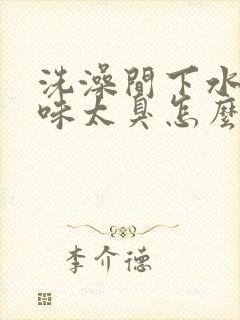 洗澡間下水
味太臭怎麼
李介德